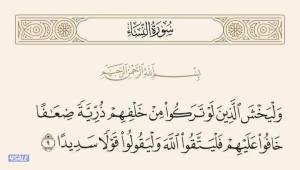 سُورَةُ النِّسَاءِ
بِسْمِ اللَّهِ الرَّحْمَٰنِ الرَّحِيمِ
وَلْيَخْشَ الَّذِينَ لَوْ تَرَكُوا مِنْ خَلْفِهِمْ ذُرِّيَّةً ضِعَافًا
خَافُوا عَلَيْهِمْ فَلْيَتَّقُوا اللَّهَ وَلْيَقُولُوا قَوْلًا سَدِيدًا ٩